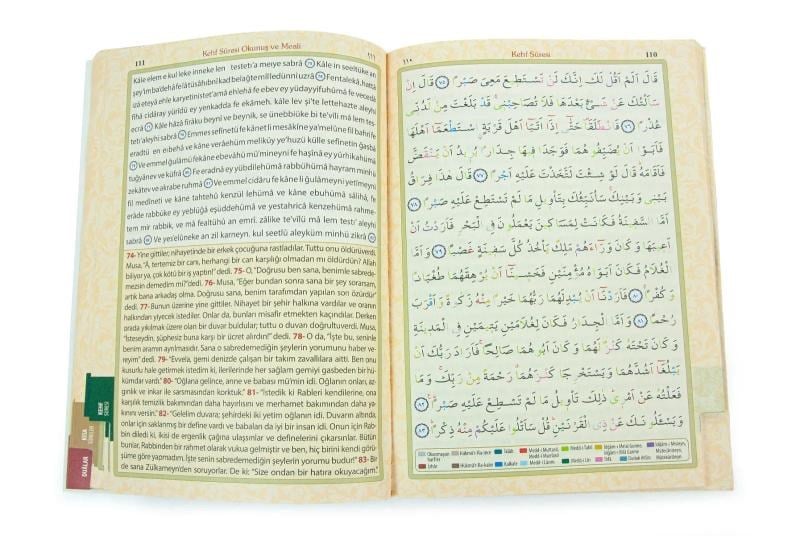 Kehf Sûresi
110
١١٠
قَالَ اَلَمْ اَقُلْ لَكَ اِنَّكَ لَنْ تَسْتَطٖيعَ مَعِيَ صَبْرًا ﴿٧٥﴾ قَالَ اِنْ
سَاَلْتُكَ عَنْ شَيْءٍ بَعْدَهَا فَلَا تُصَاحِبْنٖي قَدْ بَلَغْتَ مِنْ لَدُنّٖي
عُذْرًا ﴿٧٦﴾ فَانْطَلَقَا حَتّٰٓى اِذَٓا اَتَيَٓا اَهْلَ قَرْيَةٍ اسْتَطْعَمَٓا اَهْلَهَا
فَاَبَوْا اَنْ يُضَيِّفُوهُمَا فَوَجَدَا فٖيهَا جِدَارًا يُرٖيدُ اَنْ يَنْقَضَّ
فَاَقَامَهُ قَالَ لَوْ شِئْتَ لَتَّخَذْتَ عَلَيْهِ اَجْرًا ﴿٧٧﴾ قَالَ هٰذَا فِرَاقُ
بَيْنٖي وَبَيْنِكَ سَاُنَبِّئُكَ بِتَاْوٖيلِ مَا لَمْ تَسْتَطِعْ عَلَيْهِ صَبْرًا ﴿٧٨﴾
اَمَّا السَّفٖينَةُ فَكَانَتْ لِمَسَاكٖينَ يَعْمَلُونَ فِي الْبَحْرِ فَاَرَدْتُ اَنْ
اَعٖيبَهَا وَكَانَ وَرَٓاءَهُمْ مَلِكٌ يَاْخُذُ كُلَّ سَفٖينَةٍ غَصْبًا ﴿٧٩﴾ وَاَمَّا
الْغُلَامُ فَكَانَ اَبَوَاهُ مُؤْمِنَيْنِ فَخَشٖينَٓا اَنْ يُرْهِقَهُمَا طُغْيَانًا
وَكُفْرًا ﴿٨٠﴾ فَاَرَدْنَٓا اَنْ يُبْدِلَهُمَا رَبُّهُمَا خَيْرًا مِنْهُ زَكٰوةً وَاَقْرَبَ
رُحْمًا ﴿٨١﴾ وَاَمَّا الْجِدَارُ فَكَانَ لِغُلَامَيْنِ يَتٖيمَيْنِ فِي الْمَدٖينَةِ
وَكَانَ تَحْتَهُ كَنْزٌ لَهُمَا وَكَانَ اَبُوهُمَا صَالِحًا فَاَرَادَ رَبُّكَ اَنْ
يَبْلُغَٓا اَشُدَّهُمَا وَيَسْتَخْرِجَا كَنْزَهُمَا رَحْمَةً مِنْ رَبِّكَ وَمَا
فَعَلْتُهُ عَنْ اَمْرٖي ذٰلِكَ تَاْوٖيلُ مَا لَمْ تَسْطِعْ عَلَيْهِ صَبْرًا ﴿٨٢﴾
وَيَسْـَٔلُونَكَ عَنْ ذِي الْقَرْنَيْنِ قُلْ سَاَتْلُوا عَلَيْكُمْ مِنْهُ ذِكْرًا ﴿٨٣﴾
111
Kehf Sûresi Okunuş ve Meali
١١١
Kâle elem e kul leke inneke len testetî'a meıye sabrâ (75) Kâle in seeltüke an
şey'im ba'dehâ felâ tüsâhıbnî kad belağte mil ledünnî uzrâ (76) Fentalekâ, hattâ
izâ eteyâ ehle karyetinistet'amâ ehlehâ fe ebev ey yüdayyifuhümâ fe vecedâ
fîhâ cidâray yürîdü ey yenkadda fe ekâmeh. kâle lev şi'te lettehazte aleyhi
ecrâ (77) Kâle hâzâ firâku beynî ve beynik, se ünebbiüke bi te'vîli mâ lem tes-
teti' aleyhi sabrâ (78) Emmes sefînetü fe kânetli mesâkîne ya'melûne fil bahri fe
eradtü en eıbehâ ve kâne verâehüm meliküy ye'huzü külle sefînetin ğasbâ
(79) Ve emmel ğulâmü fekâne ebevâhü mü'mineyni fe haşînâ ey yürhikahümâ
tuğyânev ve küfrâ (80) Fe eradnâ ey yübdilehümâ rabbühümâ hayram minhü
zekâtev ve akrabe ruhmâ (81) Ve emmel cidâru fe kâne li ğulâmeyni yetîmeyni
fil medîneti ve kâne tahtehû kenzül lehümâ ve kâne ebuhümâ sâlihâ, fe
erâde rabbüke ey yeblüğâ eşüddehümâ ve yestahricâ kenzehümâ rahme-
tem mir rabbik, ve mâ fealtühû an emrî. zâlike te'vîlü mâ lem testı' aleyhi
sabrâ (82) Ve yes'elûneke an zil karneyn. kul seetlû aleyküm minhü zikrâ (83)
74- Yine gittiler; nihayetinde bir erkek çocuğuna rastladılar. Tuttu onu öldürüverdi.
Musa, "A, tertemiz bir canı, herhangi bir can karşılığı olmadan mı öldürdün? Allah
biliyor ya, çok kötü bir iş yaptın!" dedi. 75- O, "Doğrusu ben sana, benimle sabrede-
mezsin demedim mi?" dedi. 76- Musa, "Eğer bundan sonra sana bir şey sorarsam,
artık bana arkadaş olma. Doğrusu sana, benim tarafımdan yapılan son özürdür"
dedi. 77- Bunun üzerine yine gittiler. Nihayet bir şehir halkına vardılar ve oranın
halkından yiyecek istediler. Onlar da, bunları misafir etmekten kaçındılar. Derken
orada yıkılmak üzere olan bir duvar buldular; tuttu o duvarı doğrultuverdi. Musa,
"İsteseydin, şüphesiz buna karşı bir ücret alırdın!" dedi. 78- O da, "İşte bu, seninle
benim aramın ayrılmasıdır. Sana o sabredemediğin şeylerin yorumunu haber ve-
reyim" dedi. 79- "Evvela, gemi denizde çalışan bir takım zavallılara aitti. Ben onu
kusurlu hale getirmek istedim ki, ilerilerinde her sağlam gemiyi gasbeden bir hü-
kümdar vardı." 80- "Oğlana gelince, anne ve babası mü'min idi. Oğlanın onları, az-
gınlık ve inkar ile sarsmasından korktuk." 81- "İstedik ki Rableri kendilerine, ona
karşılık temizlik bakımından daha hayırlısını ve merhamet bakımından daha ya-
kınını versin." 82- "Gelelim duvara; şehirdeki iki yetim oğlanın idi. Duvarın altında,
onlar için saklanmış bir define vardı ve babaları da iyi bir insan idi. Onun için Rab-
bin diledi ki, ikisi de ergenlik çağına ulaşsınlar ve definelerini çıkarsınlar. Bütün
bunlar, Rabbinden bir rahmet olarak vukua gelmiştir ve ben, hiç birini kendi görü-
şüme göre yapmadım. İşte senin sabredemediğin şeylerin yorumu budur!" 83- Bir
de sana Zülkarneyn'den soruyorlar. De ki: "Size ondan bir hatıra okuyacağım."
KEHF SÛRESİ
KISA SÛRELER
DUÂLAR